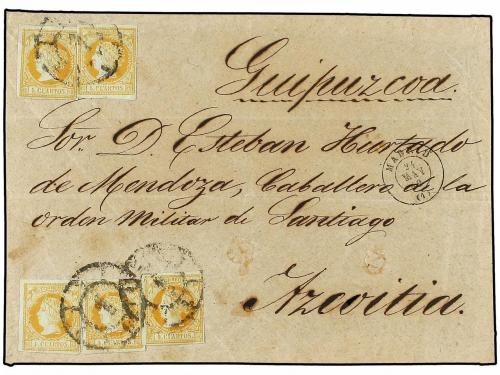 Guipuzcoa.
Sor. D. Esteban Hurtado
de Mendoza, Caballero de la
orden Militar de Santiago
Azcoitia.
MADRID
24
MAY
4 CUARTOS
4 CUARTOS
4 CUARTOS
4 CUARTOS
4 CUARTOS